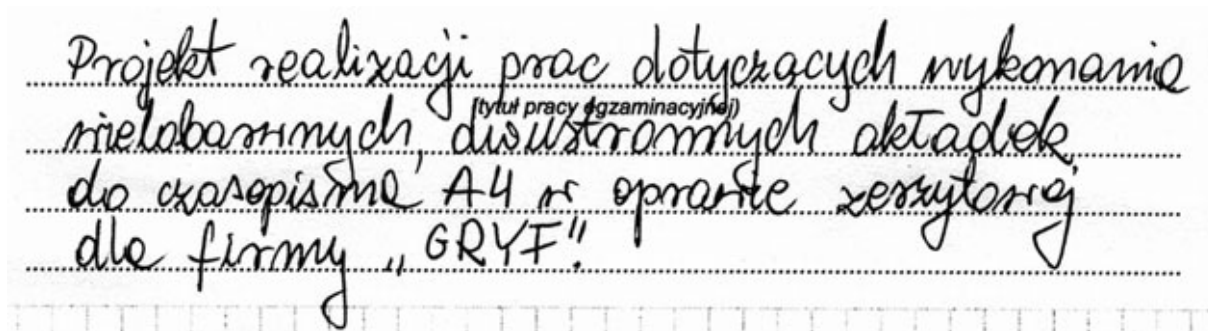 Projekt realizacji prac dotyczących wykonania
(tytuł pracy egzaminacyjnej)
wielobarwnych, dwustronnych okładek
do czasopisma A4 w oprawie zeszytowej
dla firmy „GRYF”.